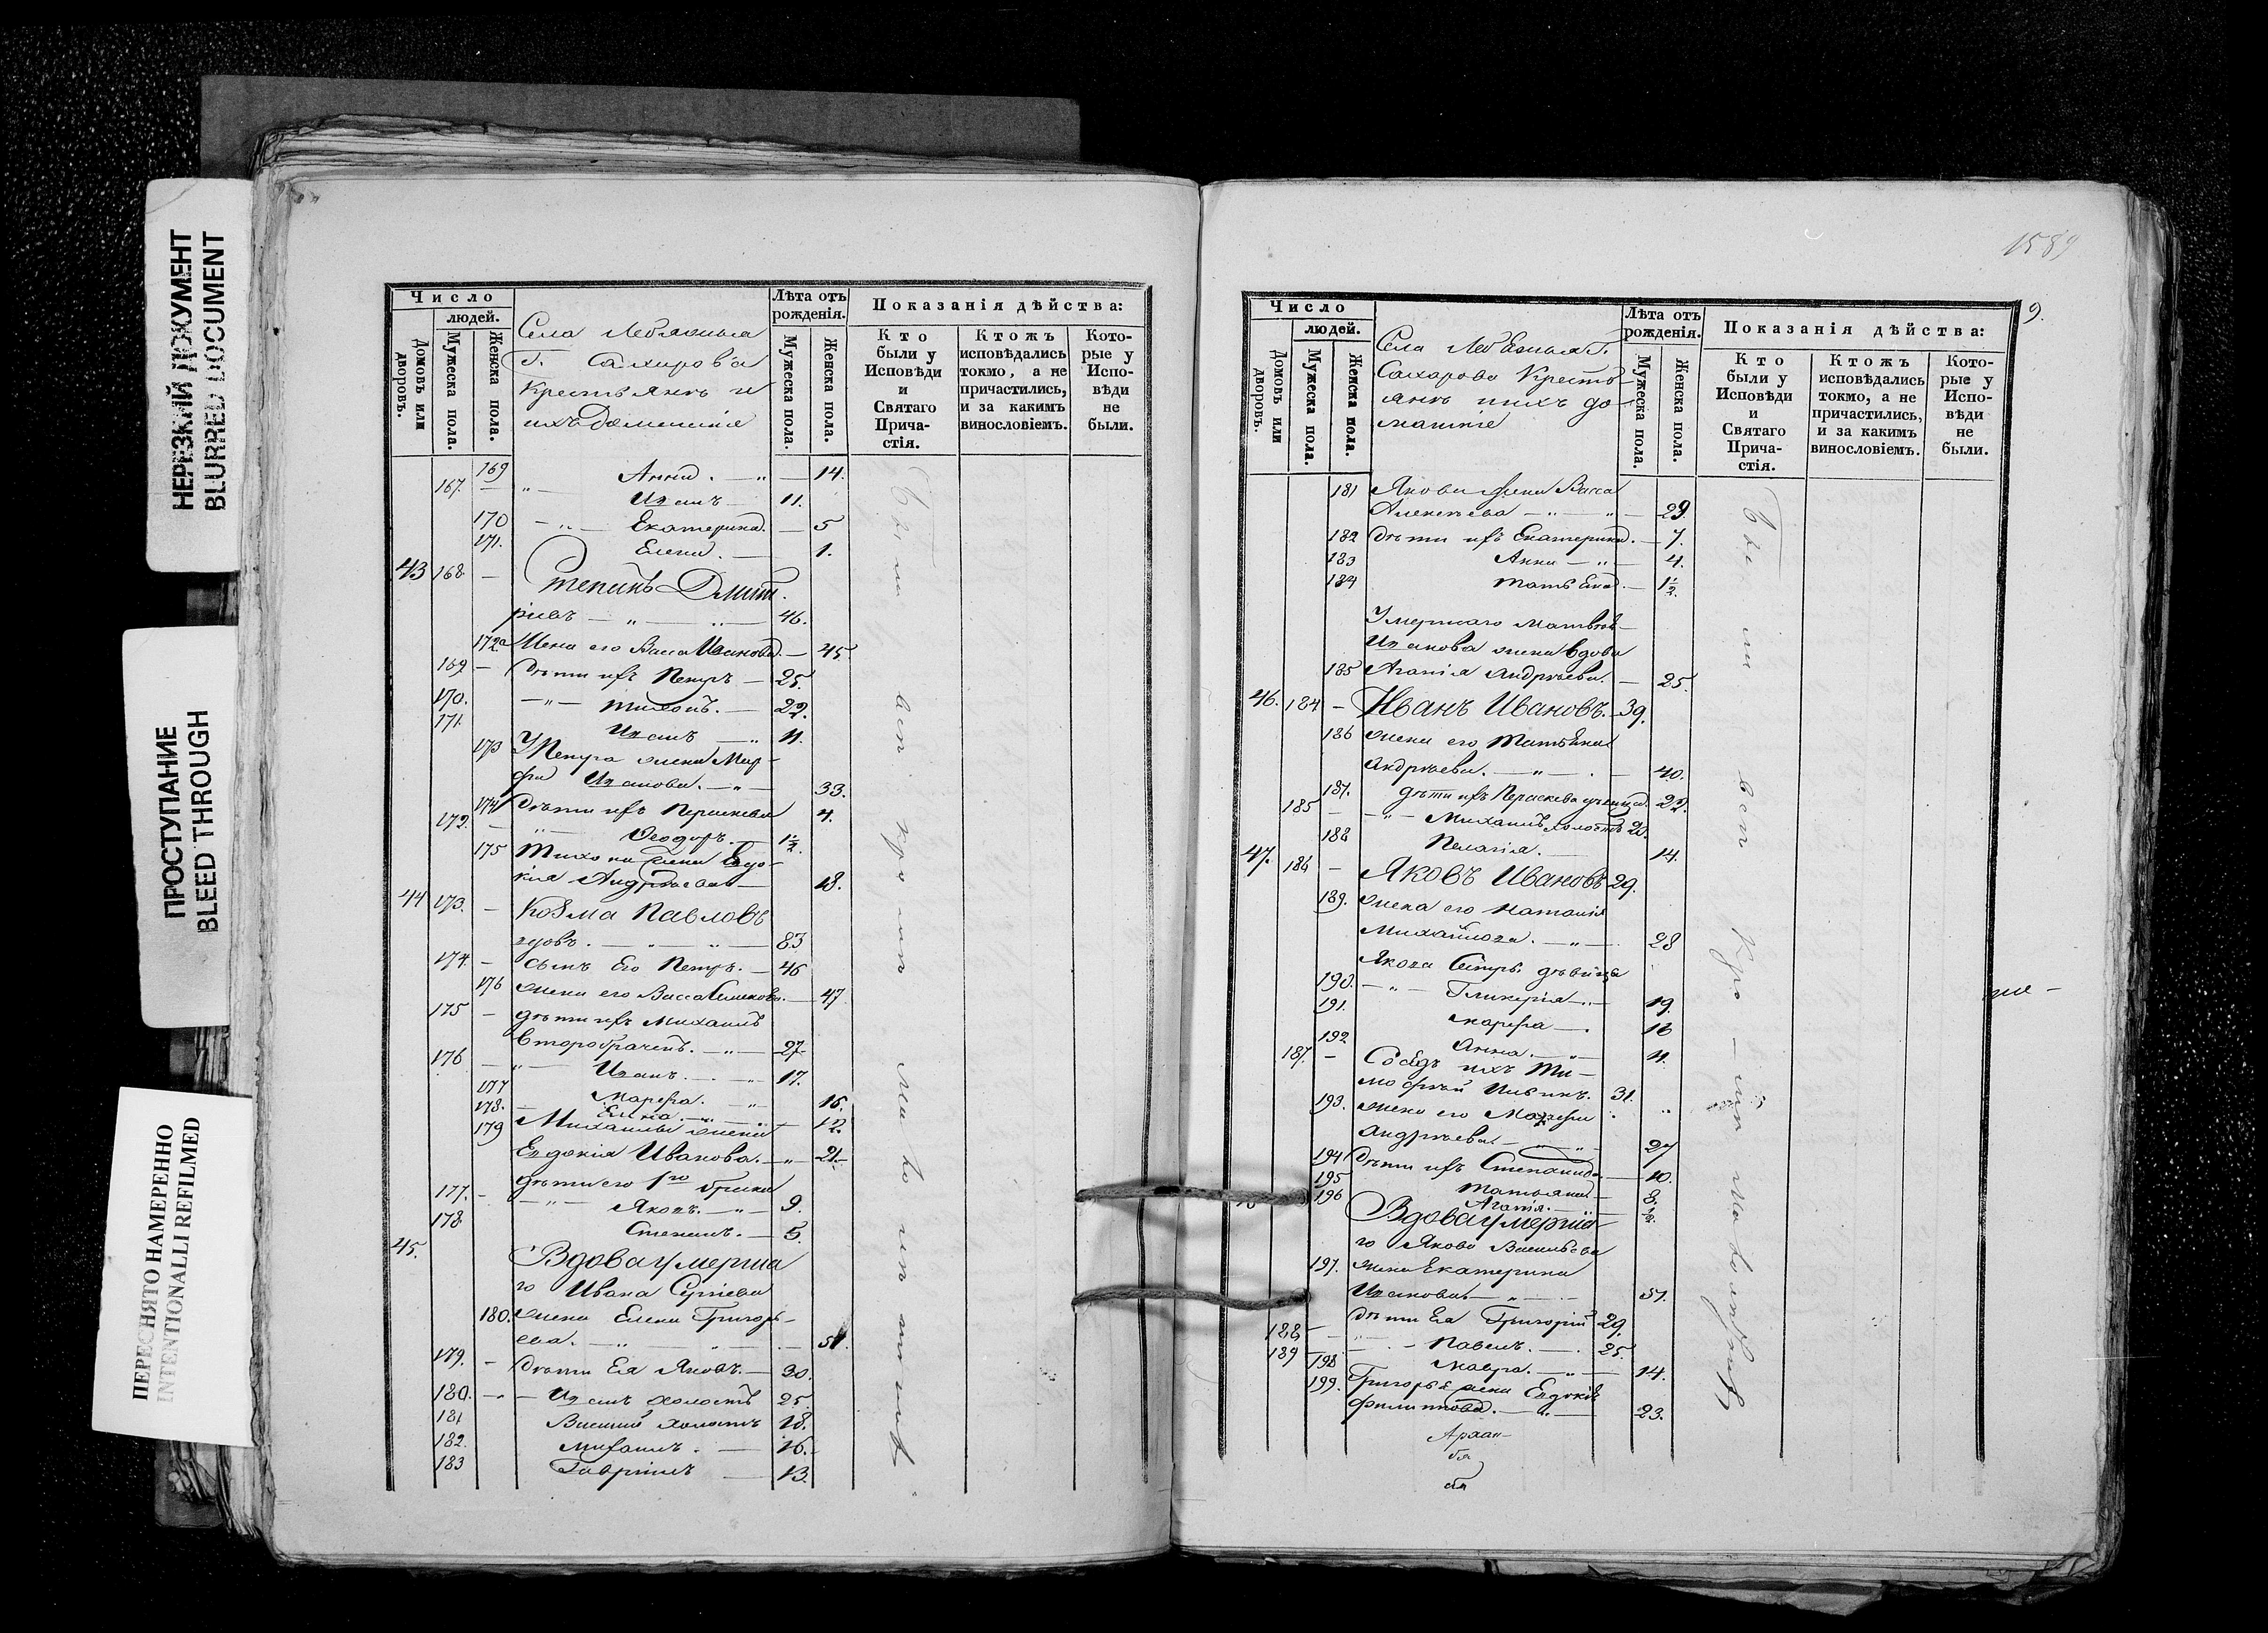 НЕРЕЗКИЙ ДОКУМЕНТ
BLURRED DOCUMENT
ПРОСТУПАНИЕ
BLEED THROUGH
ПЕРЕСНЯТО НАМЕРЕННО
INTENTIONALLI REFILMED
Число
людей.
Домовъ или дворовъ.
Мужеска пола.
Женска пола.
Села
Г.
Крестьянъ и
ихъ Домашнiе
Лѣта отъ рожденія.
Мужеска пола.
Женска пола.
Показанія дѣйства:
Кто были у Исповѣди и Святаго Прича- стія.
Ктожъ исповѣдались токмо, а не причастились, и за какимъ винословіемъ.
Кото- рые у Испо- вѣди не были.
169 Анна. — „ — 14.
167. — „ — Иванъ 11.
170 — „ — Екатерина. — 5
171. Елена. — 1.
43 168. — Степанъ Дмит
рiевъ — „ — „ — 46.
172 Жена его Васса Иванова. — 45.
169 — Дѣти ихъ Петръ — 25.
170. — „ — Тихонъ. — 22.
171. Иванъ — „ 11.
173 У Петра жена Мар-
фа Иванова. — „ — 33.
174 Дѣти ихъ Параскева 4.
172. — „ — Ѳеодоръ. — 1½.
175 Тихона жена Евдо-
кiя Андреева — 18.
44 173. — Козма Павловъ
вдовъ. — „ — „ — 83
174. — Сынъ Его Петръ. — 46
176 Жена его Васса Семенова. — 47
175 — дѣти ихъ Михаилъ
Второбрачен. — „ — 27.
176 — „ — Иванъ. — „ — 17.
177 Марѳа. — „ — 16.
178. — Елена. — „ — 12.
179 Михаила жена
Евдокiя Иванова. — „ — 21.
дѣти его 1го брака
177. — „ — Яковъ. — „ — 9.
178. Степанъ. — 5.
45. Вдова умерша
го Ивана Сергiева
180. жена Елена Григорь-
ева. — „ — „ — 51.
179. — Дѣти Ея Яковъ. — 30.
180. — Иванъ холостъ 25.
181 Василiй холостъ 18.
182. Михаилъ. — 16.
183 Гаврiилъ — 13.
1589
9.
Число
людей.
Домовъ или дворовъ.
Мужеска пола.
Женска пола.
Села
Сахарова Кресть-
янъ и ихъ до-
машнiе
Лѣта отъ рожденія.
Мужеска пола.
Женска пола.
Показанія дѣйства:
Кто были у Исповѣди и Святаго Прича- стія.
Ктожъ исповѣдались токмо, а не причастились, и за какимъ винословіемъ.
Кото- рые у Испо- вѣди не были.
181 Якова жена Васса
Алексѣева — „ — „ — 29
182 Дѣти ихъ Екатерина. — 7.
183 Анна — „ — 4.
184 — 1½.
Умершаго Матвѣя
Иванова жена вдова
185 Агапiя Андрѣева. — 25.
46. 184 — Иванъ Ивановъ. — 39.
186 жена его Татьяна
Андрѣева. — „ — . — 40.
187. дѣти ихъ Параскева дѣвица. 22.
185 — „ — Михаилъ холостъ 20.
188 Пелагiя. — 14.
47. 186 — Яковъ Ивановъ 29.
189. жена его Наталiя
Михайлова. — „ — 28
Якова Сестры дѣвица
190. — „ — Гликерiя — „ — 19.
191. Марѳа — . 16
192 Анна. — „ — 11.
187. — Сосѣдъ ихъ Ти-
моѳей 31.
193. жена его
Андрѣева — „ — „ — 27
194 Дѣти ихъ Степанида. — 10.
195 Татьяна — 8.
196 Агапiя. — „ — ½.
Вдова умерша-
го Якова Васильева
197. жена Екатерина
Иванова — „ — . — 51.
Дѣти Ея Григорiй 29.
188 — „ — Павелъ. — . 25.
189 — 198 Мавра. — „ — 14.
199. Григорья жена Евдокiя
Филиппова. — „ — 23.